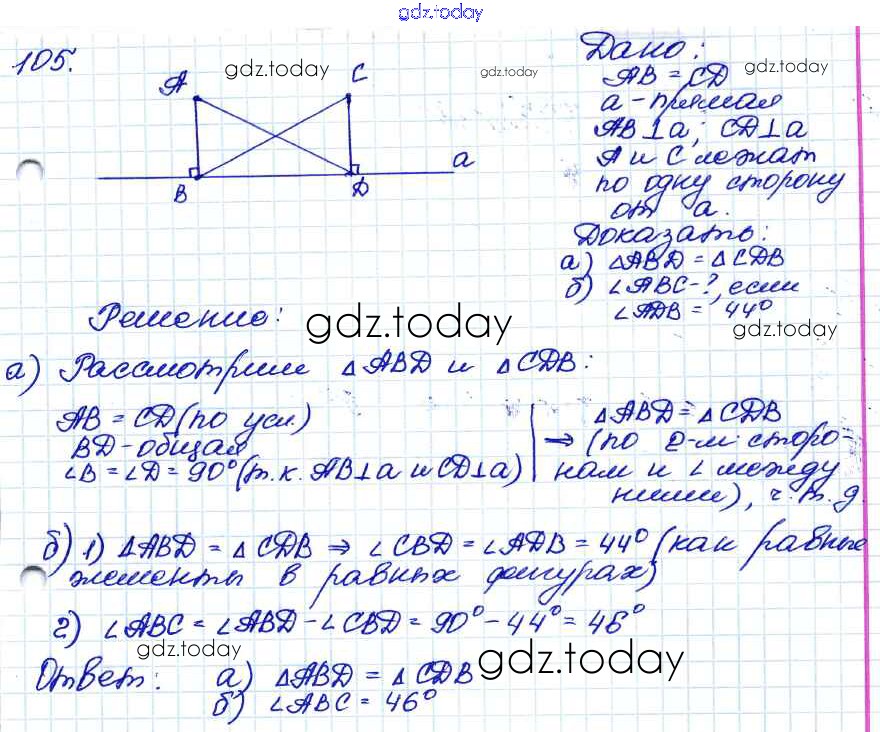 gdz.today
105.
gdz.today
gdz.today
A
C
a
B
D
Дано:
gdz.today
AB = CD
a - прямая
AB⊥a; CD⊥a
A и C лежат
по одну сторону
от a.
Доказать:
а) ΔABD = ΔCDB
б) ∠ABC-?, если
∠ADB = 44°
gdz.today
Решение:
gdz.today
а) Рассмотрим ΔABD и ΔCDB:
AB = CD (по усл.)
BD - общая
∠B = ∠D = 90° (т.к. AB⊥a и CD⊥a)
ΔABD = ΔCDB
⇒ (по 2-м сторо-
нам и ∠ между
ними), ч.т.д.
б) 1) ΔABD = ΔCDB ⇒ ∠CBD = ∠ADB = 44° (как равные
элементы в равных фигурах)
2) ∠ABC = ∠ABD - ∠CBD = 90° - 44° = 46°
gdz.today
gdz.today
Ответ: а) ΔABD = ΔCDB
б) ∠ABC = 46°